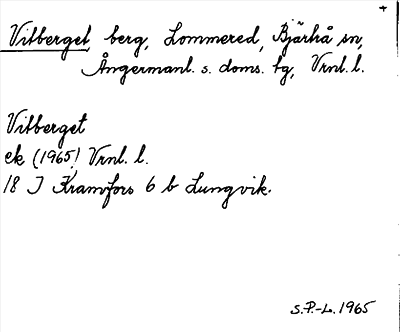 +
Vitberget, berg, Lommered, Bjärtrå sn,
Ångermanl. s. doms. tg, Vrnl. l.
Vitberget
ek (1965) Vrnl. l.
18 J Kramfors 6 b Lungvik.
S.P.-L. 1965